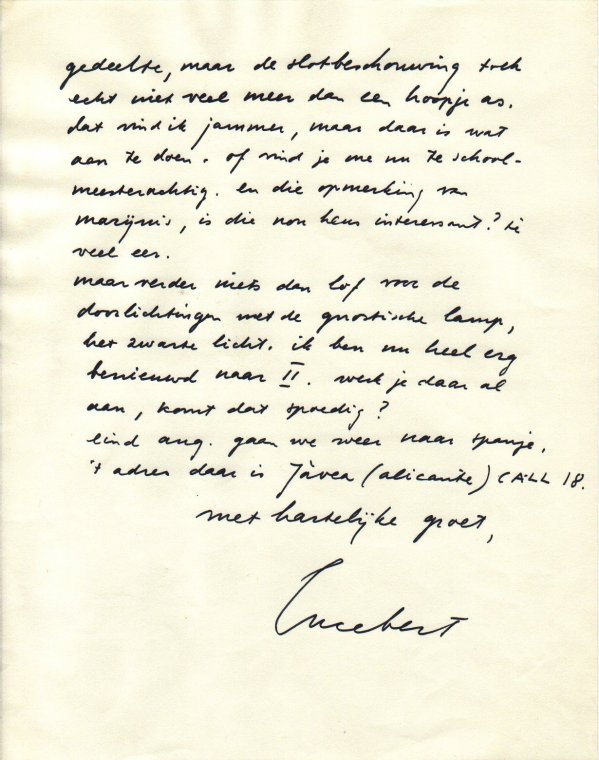 gedeelte, maar de slotbeschouwing toch
echt niet veel meer dan een hoopje as.
dat vind ik jammer, maar daar is wat
aan te doen. of vind je me nu te school-
meesterachtig. en die opmerking van
marijnis, is die nou heus interessant? te
veel eer.
maar verder niets dan lof voor de
doorlichtingen met de gnostische lamp,
het zwarte licht. ik ben nu heel erg
benieuwd naar II. werk je daar al
aan, komt dat spoedig?
eind aug. gaan we weer naar spanje.
't adres daar is Jàvea (alicante) CALL 18.
met hartelijke groet,
Lucebert